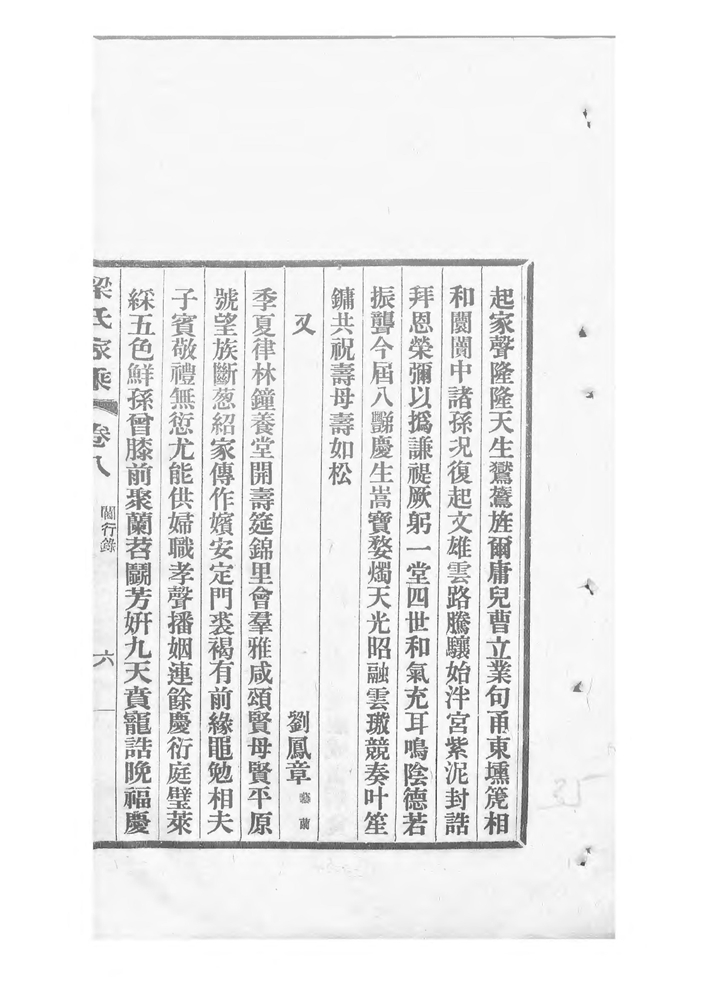 起家聲隆隆天生鸑鷟旌爾庸兒曹立業句甬東壎箎相
和闤闠中諸孫况復起文雄雲路騰驤始泮宮紫泥封誥
拜恩榮彌以撝謙禔厥躬一堂四世和氣充耳鳴陰德若
振聾今屆八豑慶生嵩寶婺燭天光昭融雲璈競奏叶笙
鏞共祝壽母壽如松
又
劉鳳章 藝蘭
季夏律林鐘養堂開壽筵錦里會羣雅咸頌賢母賢平原
號望族斷葱紹家傳作嬪安定門裘褐有前緣黽勉相夫
子賓敬禮無愆尤能供婦職孝聲播姻連餘慶衍庭璧萊
綵五色鮮孫曾膝前聚蘭茗鬭芳姸九天賁寵誥晚福慶
梁氏家乘 卷八 閫行錄 六
35